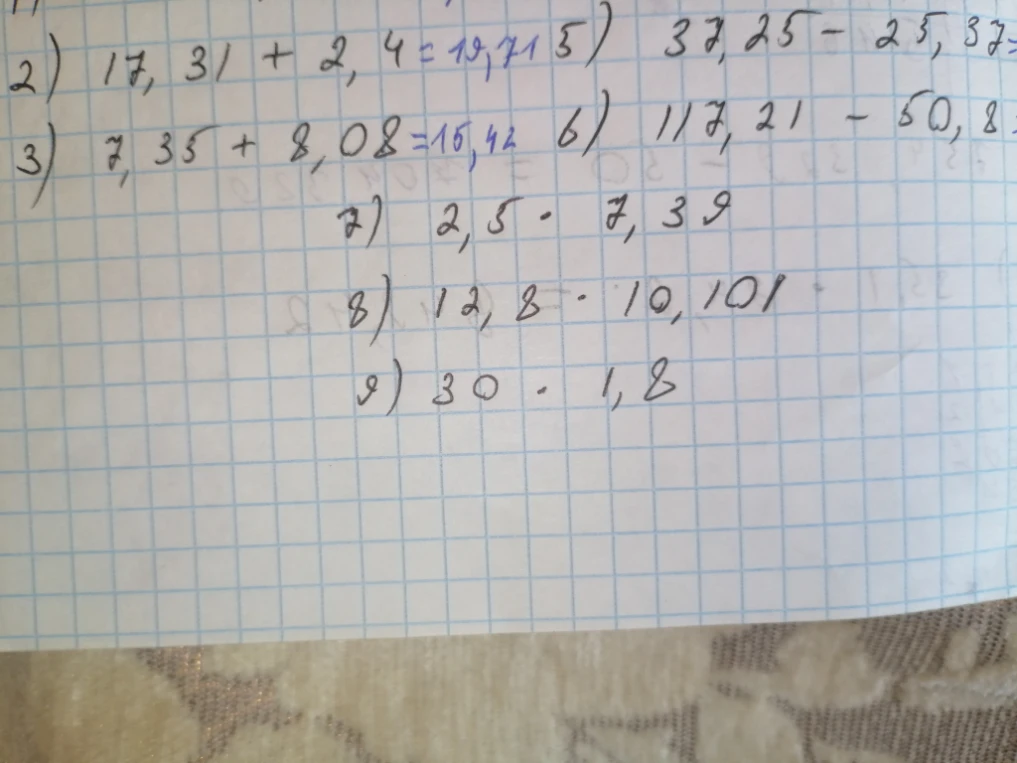 2) 17,31 + 2,4 = 19,71 5) 37,25 - 25,37=
3) 7,35 + 8,08 =15,42 6) 117,21 - 50,8=
7) 2,5 · 7,39
8) 12,8 · 10,101
9) 30 · 1,8